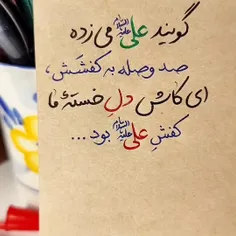 گویند علی علیه‌السلام می زده
صد وصله به کفشش،
ای کاش دلِ خستهٔ ما
کفشِ علی علیه‌السلام بود ...